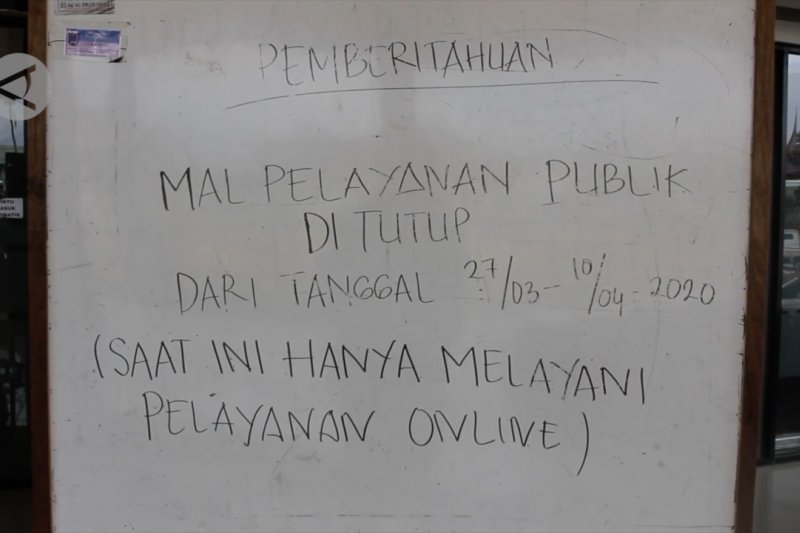 PEMBERITAHUAN
MAL PELAYANAN PUBLIK
DI TUTUP
DARI TANGGAL 27/03 - 10/04 - 2020
(SAAT INI HANYA MELAYANI
PELAYANAN ONLINE)